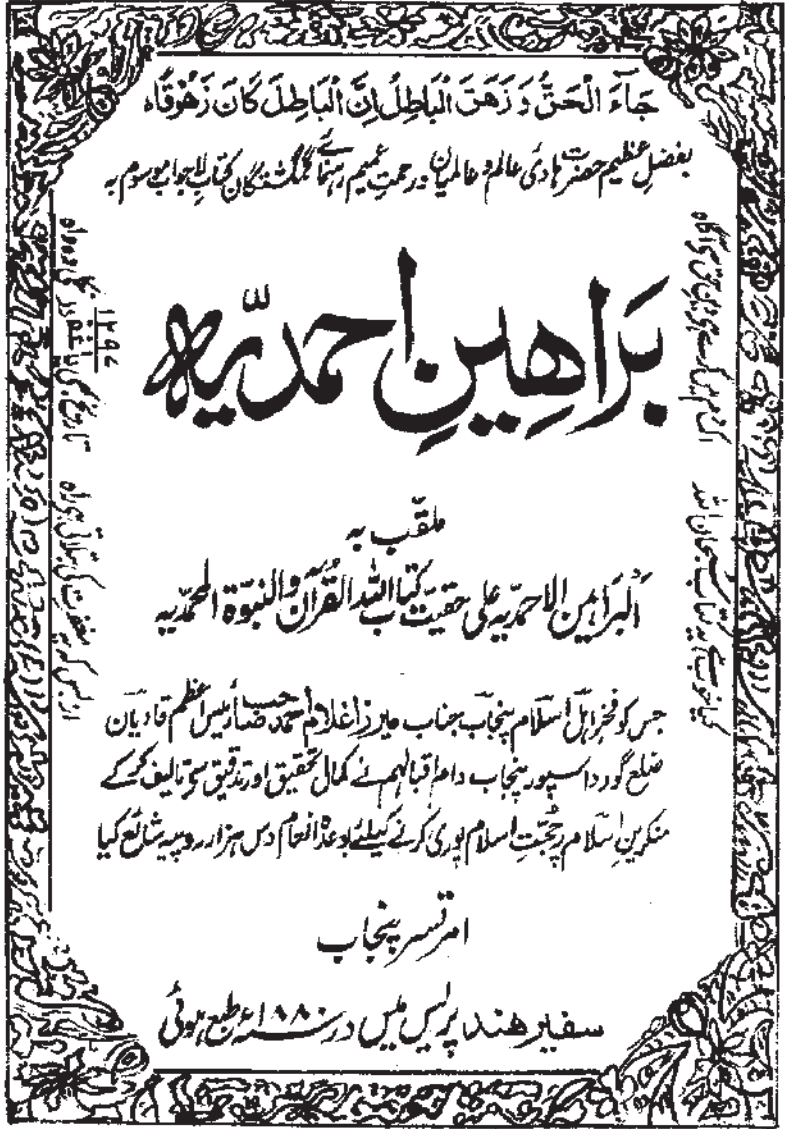 جَآءَ الْحَقُّ وَ زَهَقَ الْبَاطِلُ اِنَّ الْبَاطِلَ كَانَ زَهُوْقًا ہ
بفضلِ عظیم حضرت ہادیٔ عالم و عالمیان و رحمتِ عمیم رہنمائے گمگشتگان کتاب لاجواب موسوم بہ
بَراھِینِ احمدیّہ
ملقّب بہ
اَلبَرَاہین الاحمدیّہ علٰی حقیّت کتاب اللّٰہ القُرآن و النبوّۃ المحمّدیہ
جس کو فخر اہل اسلام پنجاب جناب میرزا غلام احمد صاحب رئیس اعظم قادیان
ضلع گورداسپور پنجاب دام اقبالہم نے کمال تحقیق اور تدقیق سے تالیف کر کے
منکرینِ اسلام پر حُجّتِ اسلام پوری کرنے کیلئے بوعدۂ انعام دس ہزار روپیہ شائع کیا
امرتسر پنجاب
سفیر ھند پریس میں در ۱۸۸۰ء طبع ہوئی
۱۲۹۷